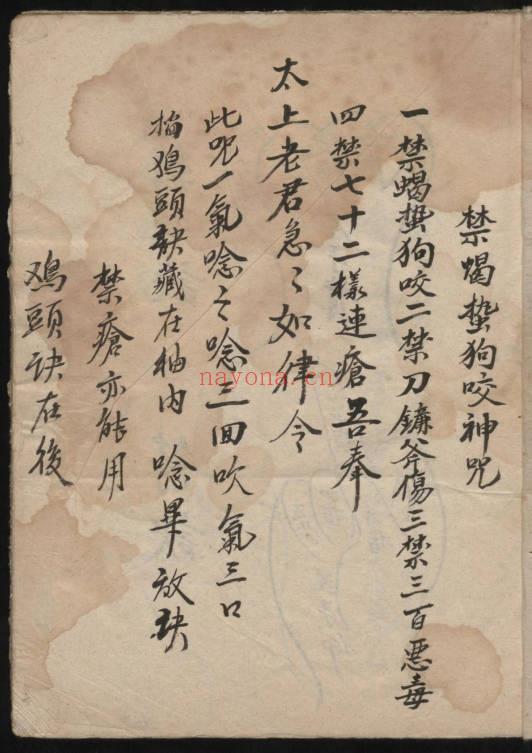 禁蝎蜇狗咬神咒
一禁蝎蜇狗咬二禁刀鐮斧傷三禁三百惡毒
四禁七十二樣連瘡吾奉
太上老君急〻如律令
此咒一氣唸之唸三回吹氣三口
掐鴉頭訣藏在袖内 唸畢放訣
禁瘡亦能用
鴉頭訣在後
nayona.cn